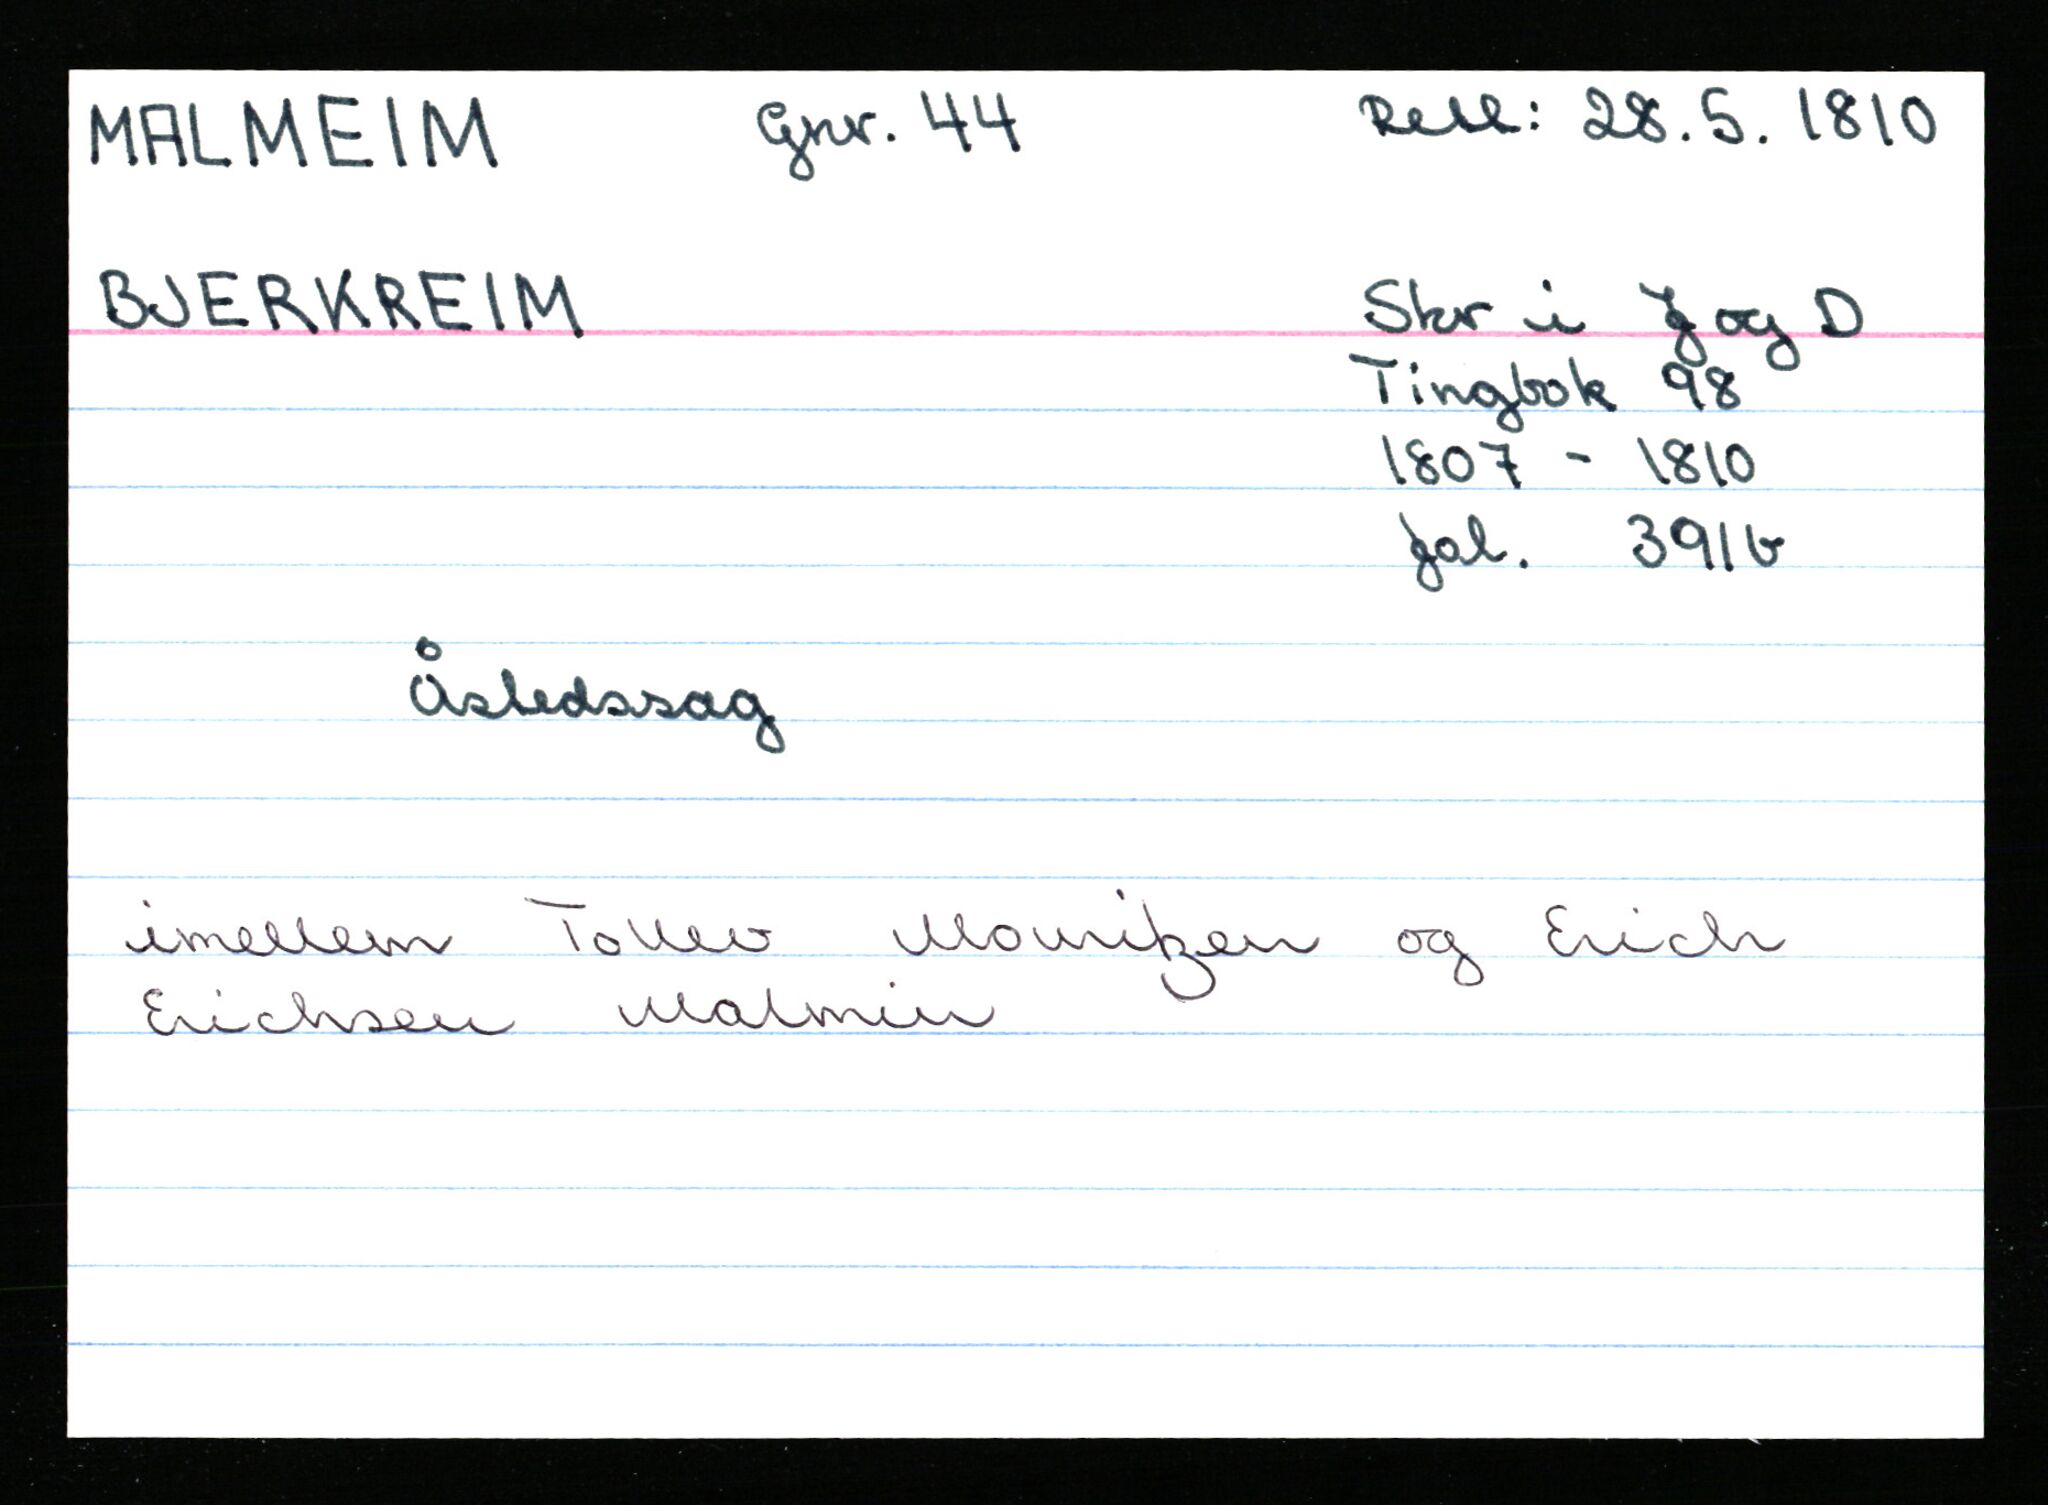 MALMEIM Gnr. 44 Rett: 28.5.1810
BJERKREIM Skr i J og D
Tingbok 98
1807 - 1810
fol. 391b
Åstedssag
imellem Tollev Mouritzen og Erich
Erichsen Malmin